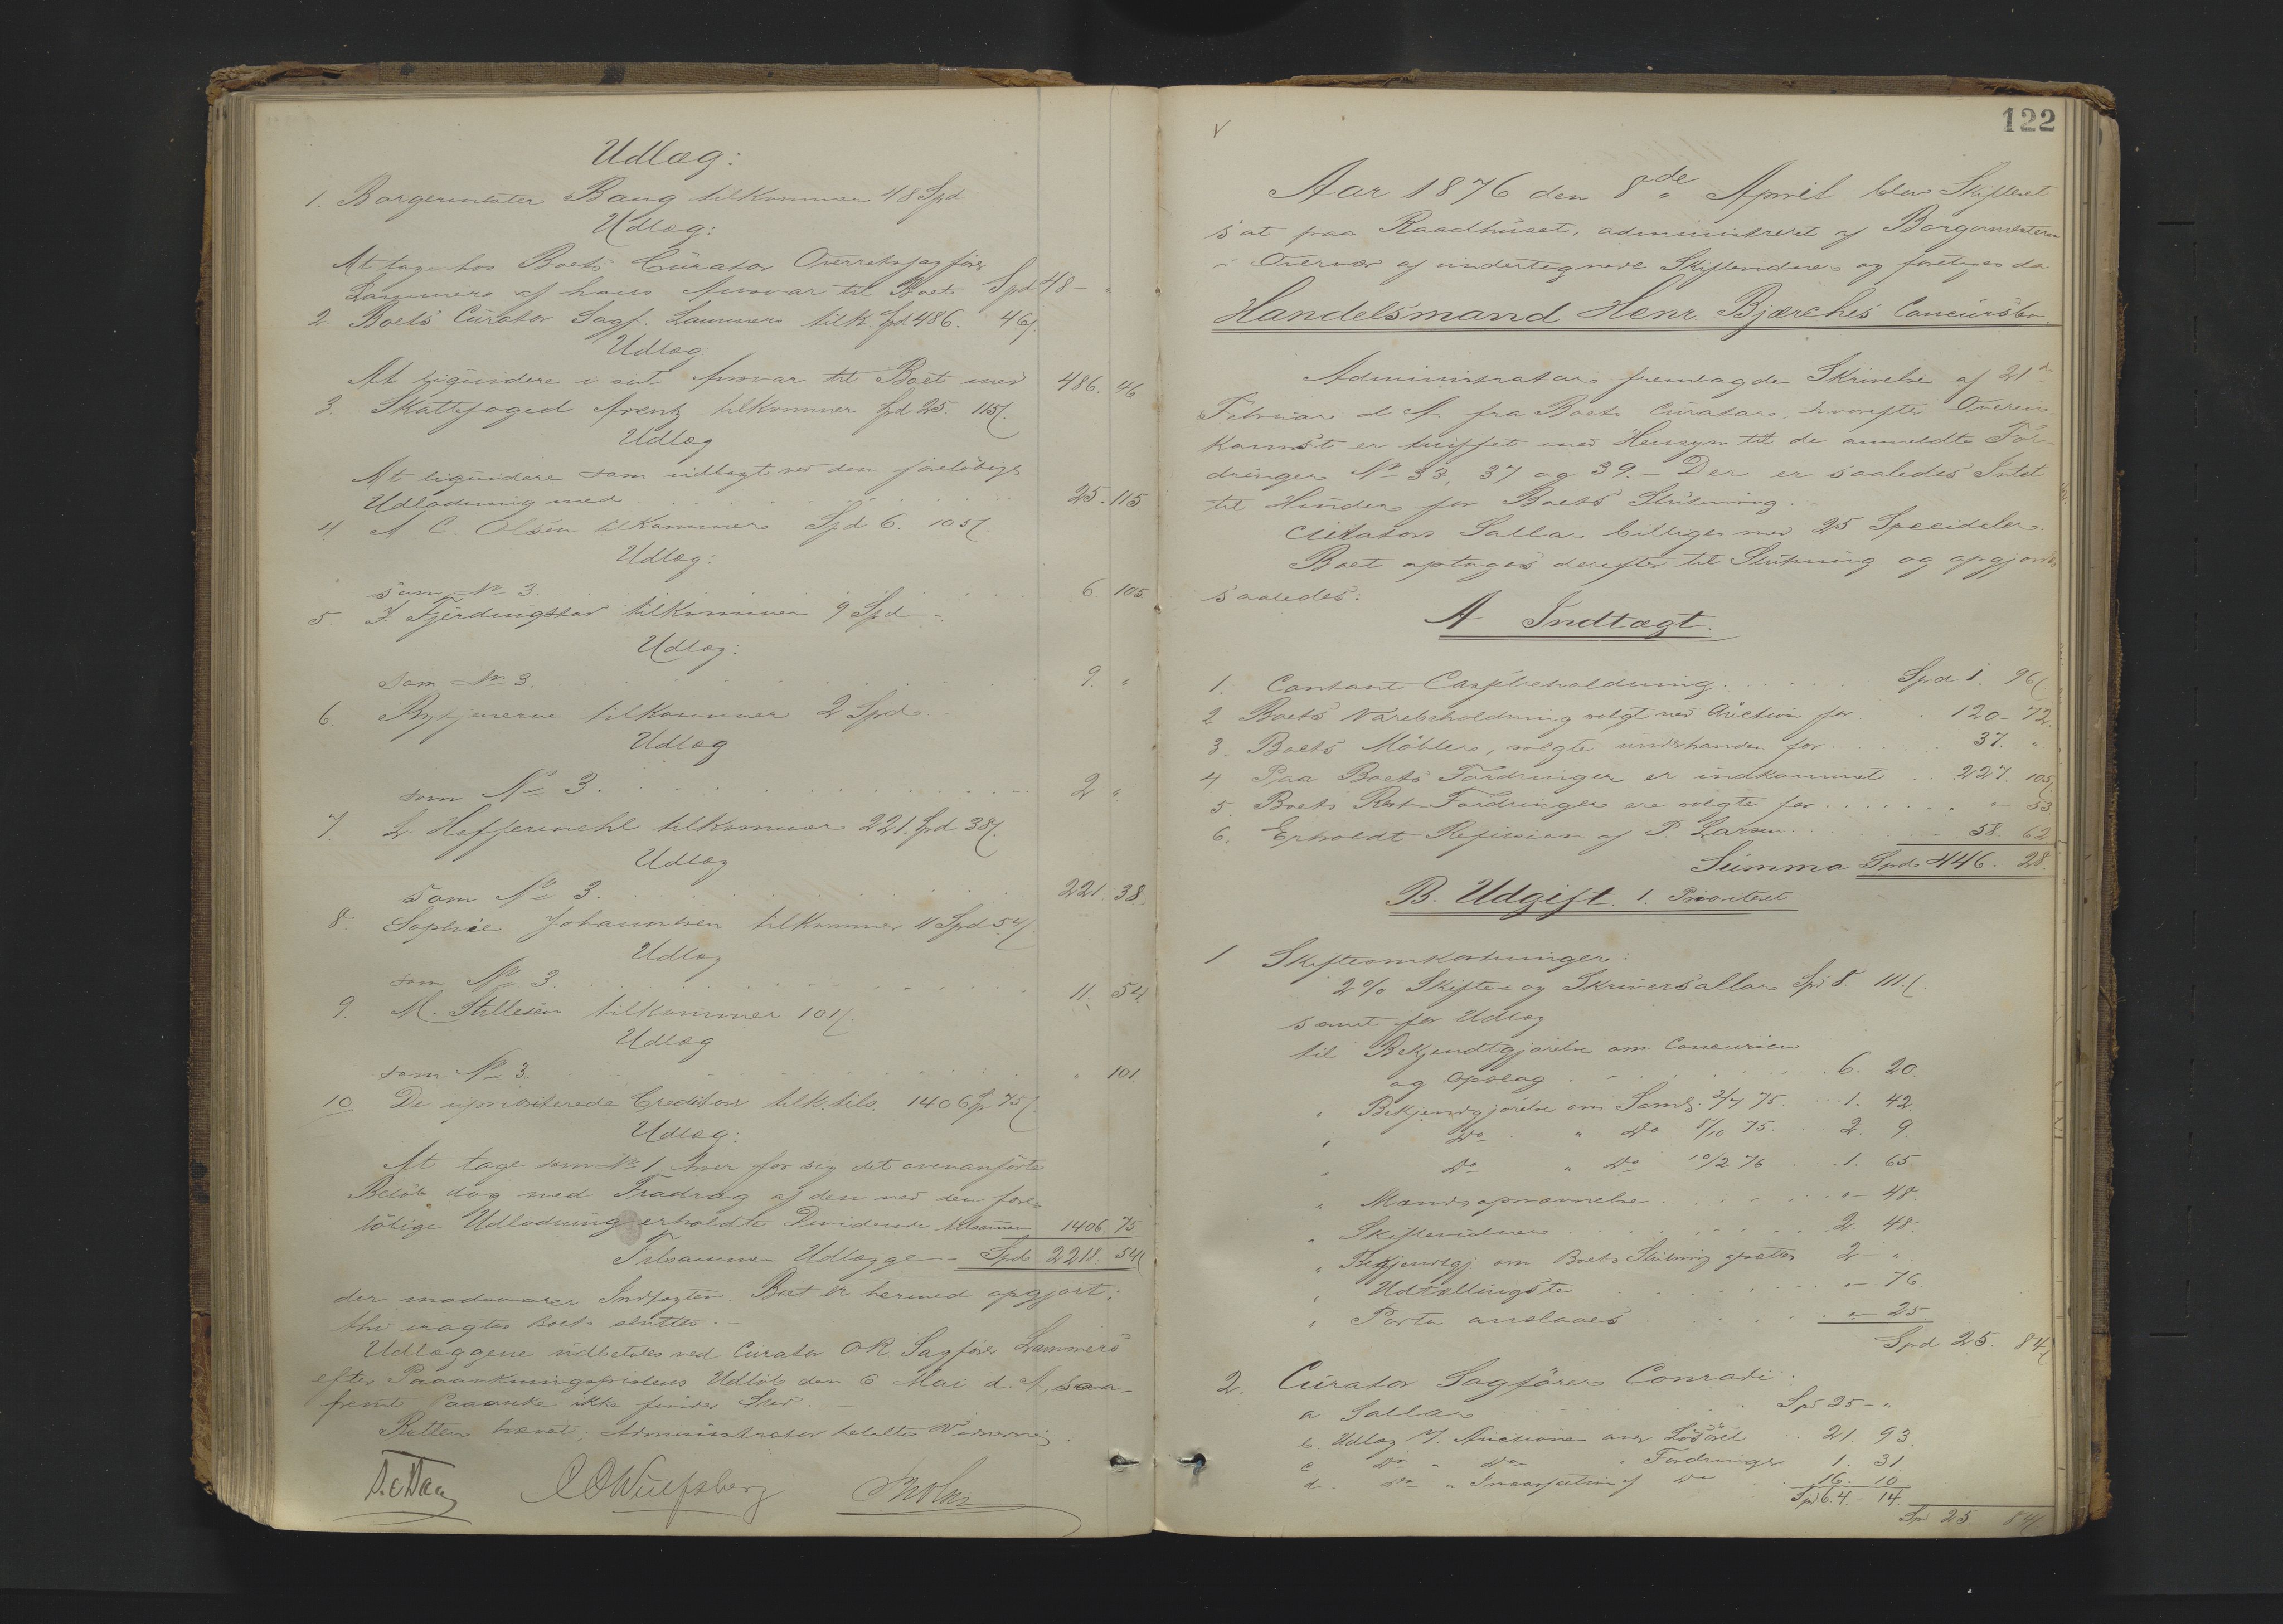 Udlæg:
1. Borgermester Bang tilkommer 48 Spd
Udlæg:
At tage hos Boets Curator Overretssagfører
Lammers af hans Ansvar til Boet Spd 48 – "
2 Boets Curator Sagf. Lammers tilk. Spd 486. 46ß.
Udlæg
At liquidere i sit Ansvar til Boet med 486. 46
3. Skattefoged Arentz tilkommer Spd 25. 115ß.
Udlæg
At liquidere som udlagt ved den foreløbige
Udlodning med 25. 115
4 A C. Olsen tilkommer Spd 6. 105ß.
Udlæg:
som No 3. 6 105.
5. J. Fjerdingstad tilkommer 9 Spd –
Udlæg:
som No 3. 9. "
6. Bytjenerne tilkommer 2 Spd.
Udlæg
som No 3. 2 ".
7. L. Heffermehl tilkommer 221. Spd 38ß.
Udlæg
som No 3. 221. 38.
8. Sophie Johannsen tilkommer 11 Spd 54ß.
Udlæg
som No 3. 11. 54
9. M. Stillesen tilkommer 101ß.
Udlæg
som No 3. " 101.
10 De uprioriterede Creditorer tilk. tils. 1406 Sp 75ß.
Udlæg:
At tage som No 1. hver for sig det ovenanførte
Beløb dog med Fradrag af den ved den fore-
løbige Udlodning erholdte Dividende tilsammen 1406. 75
Tilsammen Udlægge – Spd 2218. 54ß
der modsvarer Indtægten. Boet er hermed opgjort;
thi eragtes Boets sluttet. –
Udlæggene udbetales ved Curator O.R. Sagfører Lammers
efter Paaankningsfristens Udløb den 6 Mai d. A, saa-
fremt Paaanke ikke finder Sted. –
Retten hævet; Administrator betalte Vidnerne
C O Wulfsberg
122
Aar 1876 den 8de April blev Skifteret
sat paa Raadhuset, administreret af Borgermesteren
i Overvær af undertegnede Skiftevidner og foretages da
Handelsmand Henr. Bjerches Concursbo.
Administrator fremlagde Skrivelse af 21de
Februar d A. fra Boets Curator, hvorefter Overens
komst er truffet med Hensyn til de anmeldte For-
dringer No 33, 37 og 39. – Der er saaledes Intet
til Hinder for Boets Slutning. –
Curators Sallar billiges med 25 Speciedaler.
Boet optages derefter til Slutning og opgjøres
saaledes:
A Indtægt.
1. Contant Cassebeholdning Spd 1. 96ß.
2 Boets Varebeholdning solgt ved Auction for 120 – 72.
3. Boets Møbler, solgte underhaanden for 37. "
4 Paa Boets Fordringer er indkommet 227. 105.
5. Boets Rest Fordringer ere solgte for " – 53
6. Erholdt Refusion af P. Larsen 58. 62
Summa Spd 446. 28.
B. Udgift. 1. Prioritet
1 Skifteomkostninger:
2% Skifte- og Skriversallar Spd 8. 111.ß.
samt for Udlæg
til Bekjendtgjørelse om Concursen
og Opslag 6. 20.
" Bekjendtgjørelse om Saml. 2/7 75. 1. 42
" Do " Do 5/10 75. 2. 9.
" Do " Do 10/2 76 1. 65.
" Mandsopnævnelse " – 48.
" Skiftevidner 2. 48.
" Bekjendtgj. om Boets Slutning opsættes 2 – "
" Udtællingste " – 76
" Porto anslaaes " – 25
Spd 25. 84ß
2. Curator Sagfører Conradi:
a Sallar Spd 25 – "
b. Udlæg f. Auctionen over Løsøret 21. 93.
c Do " Do " Fordringer 1. 31.
d. Do " Incassation af Do 16. 10
Spd 64. – 14.
Spd 25. 84ß